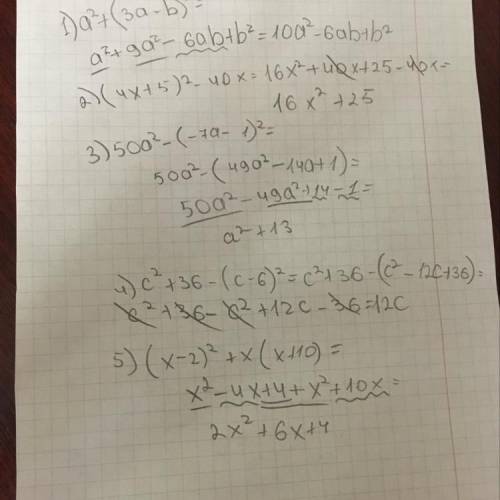 1) a²+(3a-b)²=
a²+9a²-6ab+b²=10a²-6ab+b²
2)(4x+5)²-40x=16x²+40x+25-40x=
16x²+25
3) 50a²-(-7a-1)²=
50a²-(49a²-14a+1)=
50a²-49a²+14-1=
a²+13
4) c²+36-(c-6)²=c²+36-(c²-12c+36)=
c²+36-c²+12c-36=12c
5) (x-2)²+x(x+10)=
x²-4x+4+x²+10x=
2x²+6x+4